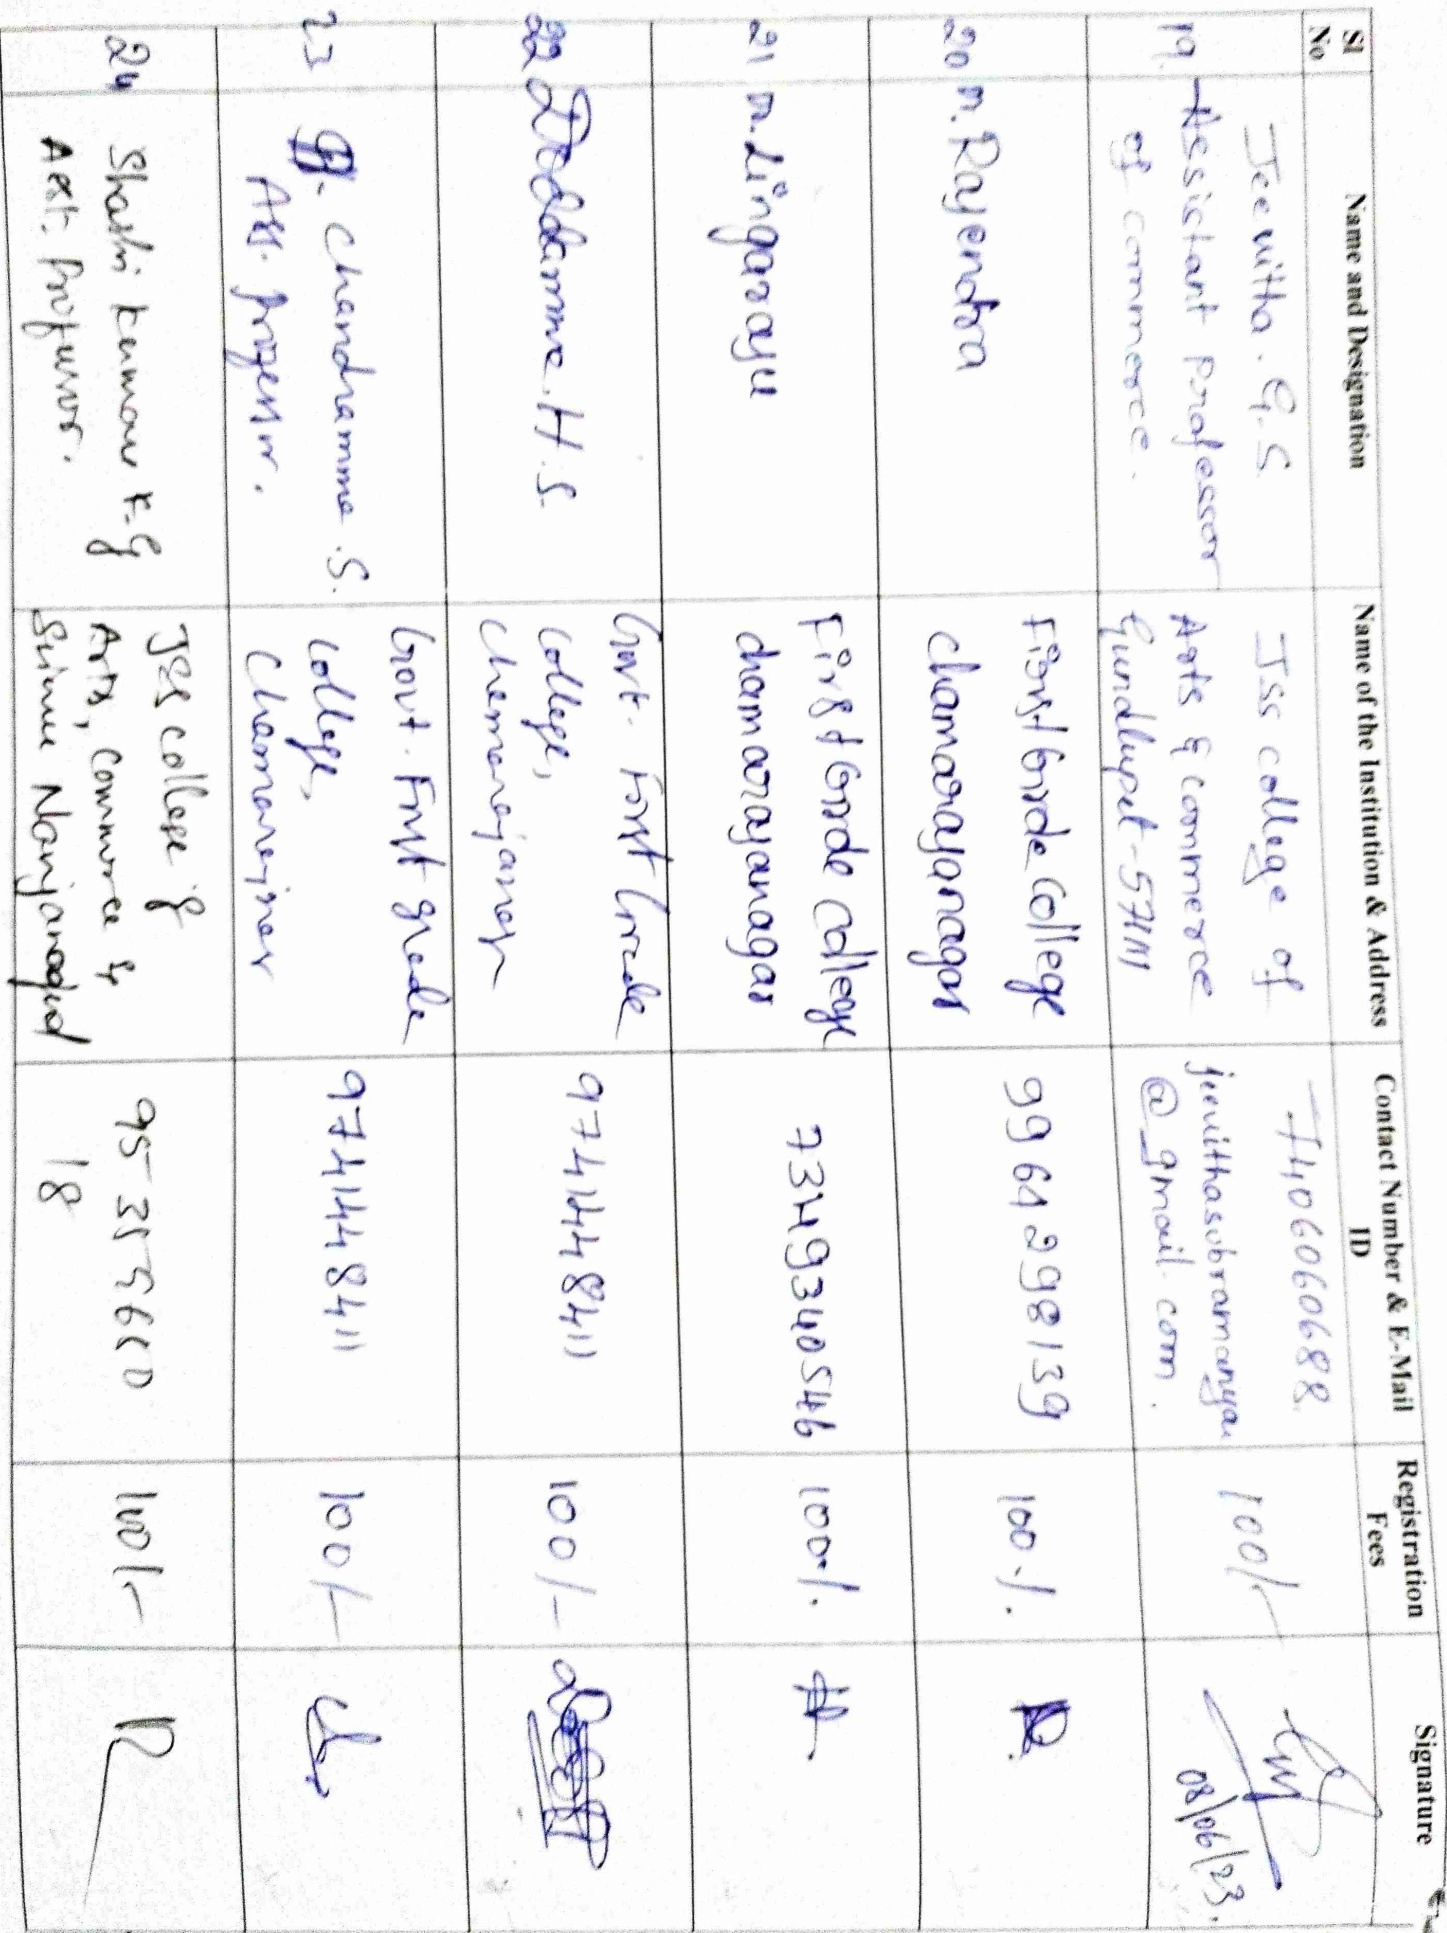 Sl No
Name and Designation
Name of the Institution & Address
Contact Number & E-Mail ID
Registration Fees
Signature
19.
Jeevitha. G. S
Assistant Professor
of commerce.
JSS college of
Arts & commerce
Gundlupet-571111
7406060688
jeevithasubramanya
@gmail.com.
100/-
08/06/23.
20
m. Rajendra
First Grde College
chamarajanagar
9964298139
100./.
21
m. Lingaraju
First Grde College
chamarajanagar
7349340546
100./.
22
Doddamma. H. S.
Govt. First Grade
College,
Chamarajanagar
9741448411
100/-
23
Chandramma .S.
Ass. professor.
Govt. First grade
College,
Chamarajnagar
9741448411
100/-
24
Shashi kumar K.G
Asst. Professor.
JSS college of
Arts, Commerce &
Science Nanjanagud
18
100/-